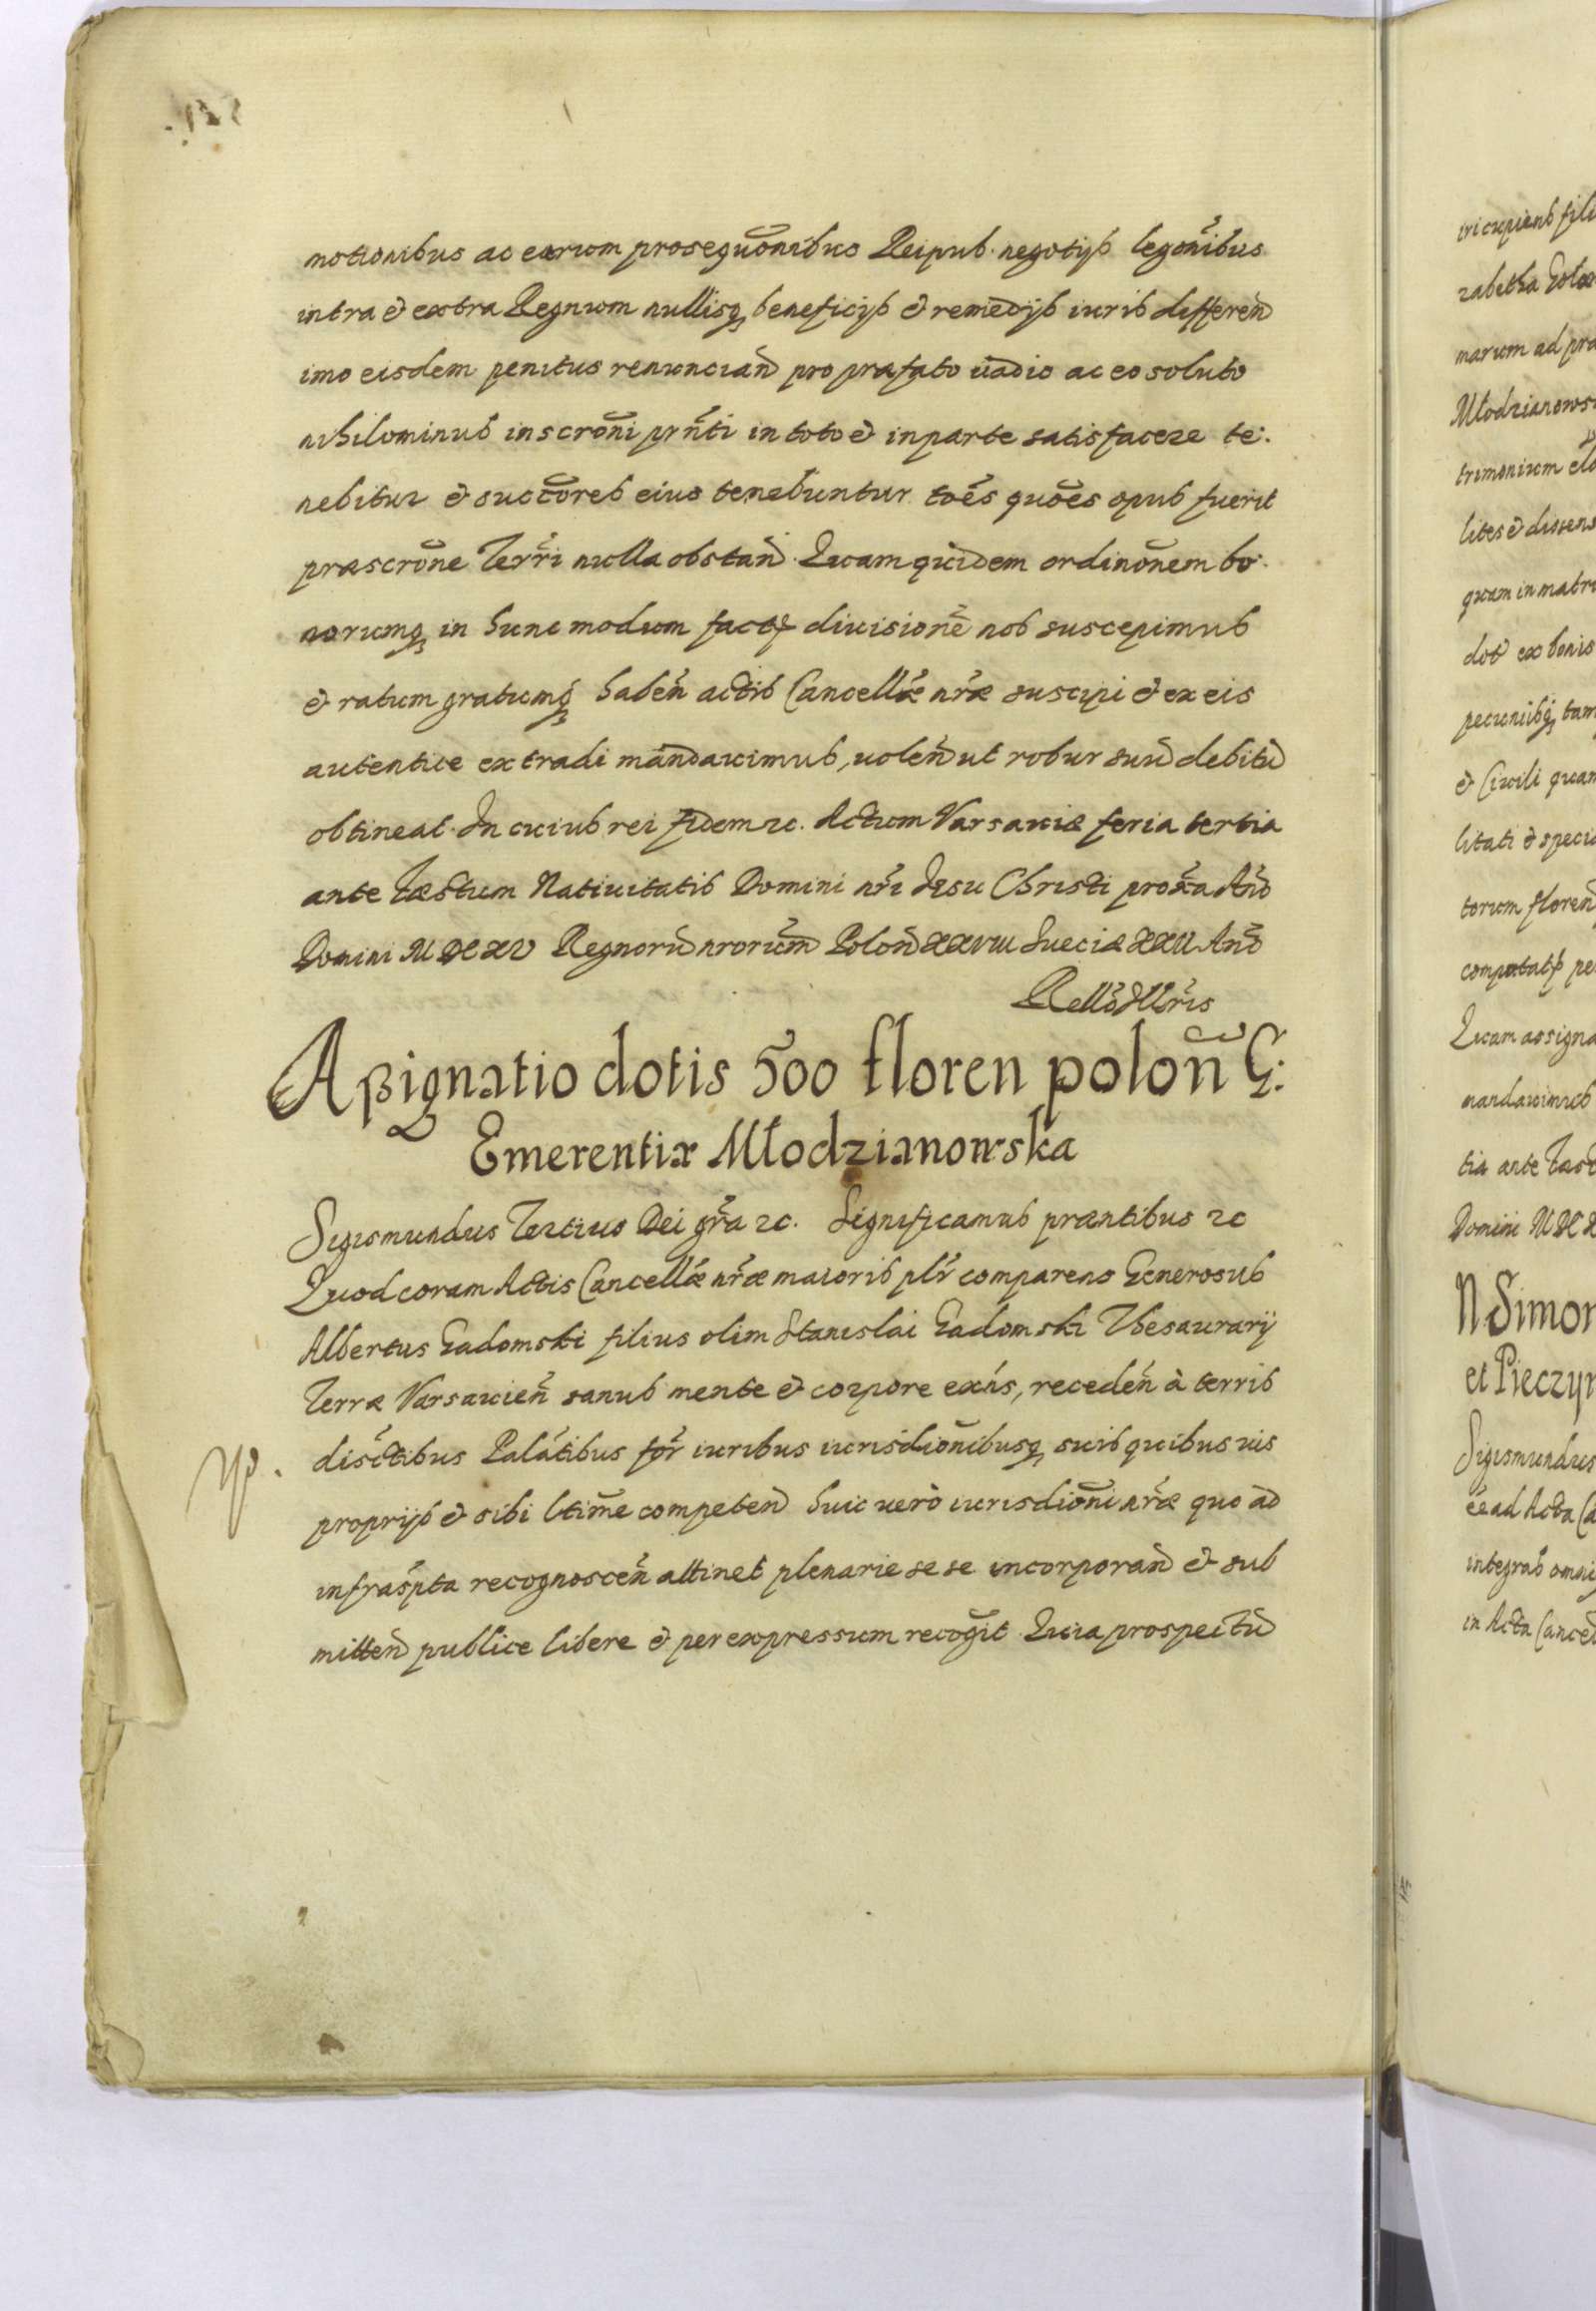 motionibus ac earum prosequõnibus Reipub. negotijs legõnibus
intra et extra Regnum nullisq beneficijs et remedijs iuris differeñ
imo eisdem penitus renuncian̄ pro præfato vadio ac eo soluto
nihilominus inscrõni prñti in toto et in parte satisfacere te:
nebitur et succõres eius tenebuntur toẽs quoẽs opus fuerit
præscrõne Terrĩ nulla obstan̄. Quam quidem ordinõnem bo:
norumq in hunc modum fact divisionẽ nos suscepimus
et ratum gratumq haben̄ actis Cancellæ nr̃æ suscipi et ex eis
autentice extradi mandavimus, uolen̄ ut robur suũ debitũ
obtineat. In cuius rei fidem zc. Actum Varsaviæ feria tertia
ante Fæstum Natiuitatis Domini nr̃i Jesu Christi proxa An̄o
Domini MDCXV Regnorũ nrorum Polon̄ XXVIII Sueciæ XXII An̄o
Rellõ Illris
Aßignatio dotis 500 floren polon̄ G:
Emerentiæ Młodzianowska
Sigismundus Tertius Dei gr̃a zc. Significamus præntibus zc
Quod coram Actis Cancellæ nr̃æ maioris plr̃ comparens Generosus
Albertus Gadomski filius olim Stanislai Gadomski Thesaurarij
Terræ Varsavien̄ sanus mente et corpore exñs, receden̄ à terris
discttibus Palãtibus for̃ iuribus iurisdiõnibusq suis quibusuis
proprijs et sibi ltime competen̄ huic uerò iurisdiõni nr̃æ quo ad
infraspta recognoscen̄ attinet plenarie se se incorporan̄ et sub
mitten̄ publice libere et per expressum recogit. Quia prospectũ
iri cupiens fili
zabetha
marum ad præ
Młodzianows
trimonium
lites et dissens
quam in matri
dot ex bonis
pecunijsq tam
et Civili quam
litati et specia
torum floren̄
computat pe
Quam assigna
mandavimus
tia ante Fæst
Domini MDCX
N Simon
et Pieczyn
Sigismundus
eẽ ad Acta Ca
integras omni
in Acta Cancel